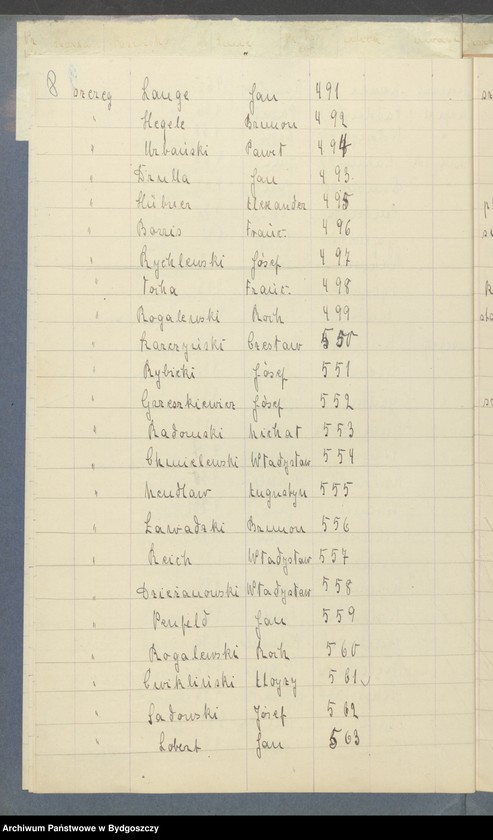 8 szereg Lange Jan 491
" Hegele Brunon 492
" Urbański Paweł 494
" Dzulla Jan 493
" Hübner Alexander 495
" Bonis Franc. 496
" Rychlewski Józef 497
" Torha Franc. 498
" Rogalewski Roch 499
" Karczyński Czesław 550
" Rybicki Józef 551
" Grzeszkiewicz Józef 552
" Radomski Michał 553
" Chmielewski Władysław 554
" Neudław Augustyn 555
" Zawadzki Brunon 556
" Reich Władysław 557
" Dzieżanowski Władysław 558
" Penfeld Jan 559
" Rogalewski Roch 560
" Cwikliński Aloyzy 561
" Sadowski Józef 562
" Lobert Jan 563
Archiwum Państwowe w Bydgoszczy